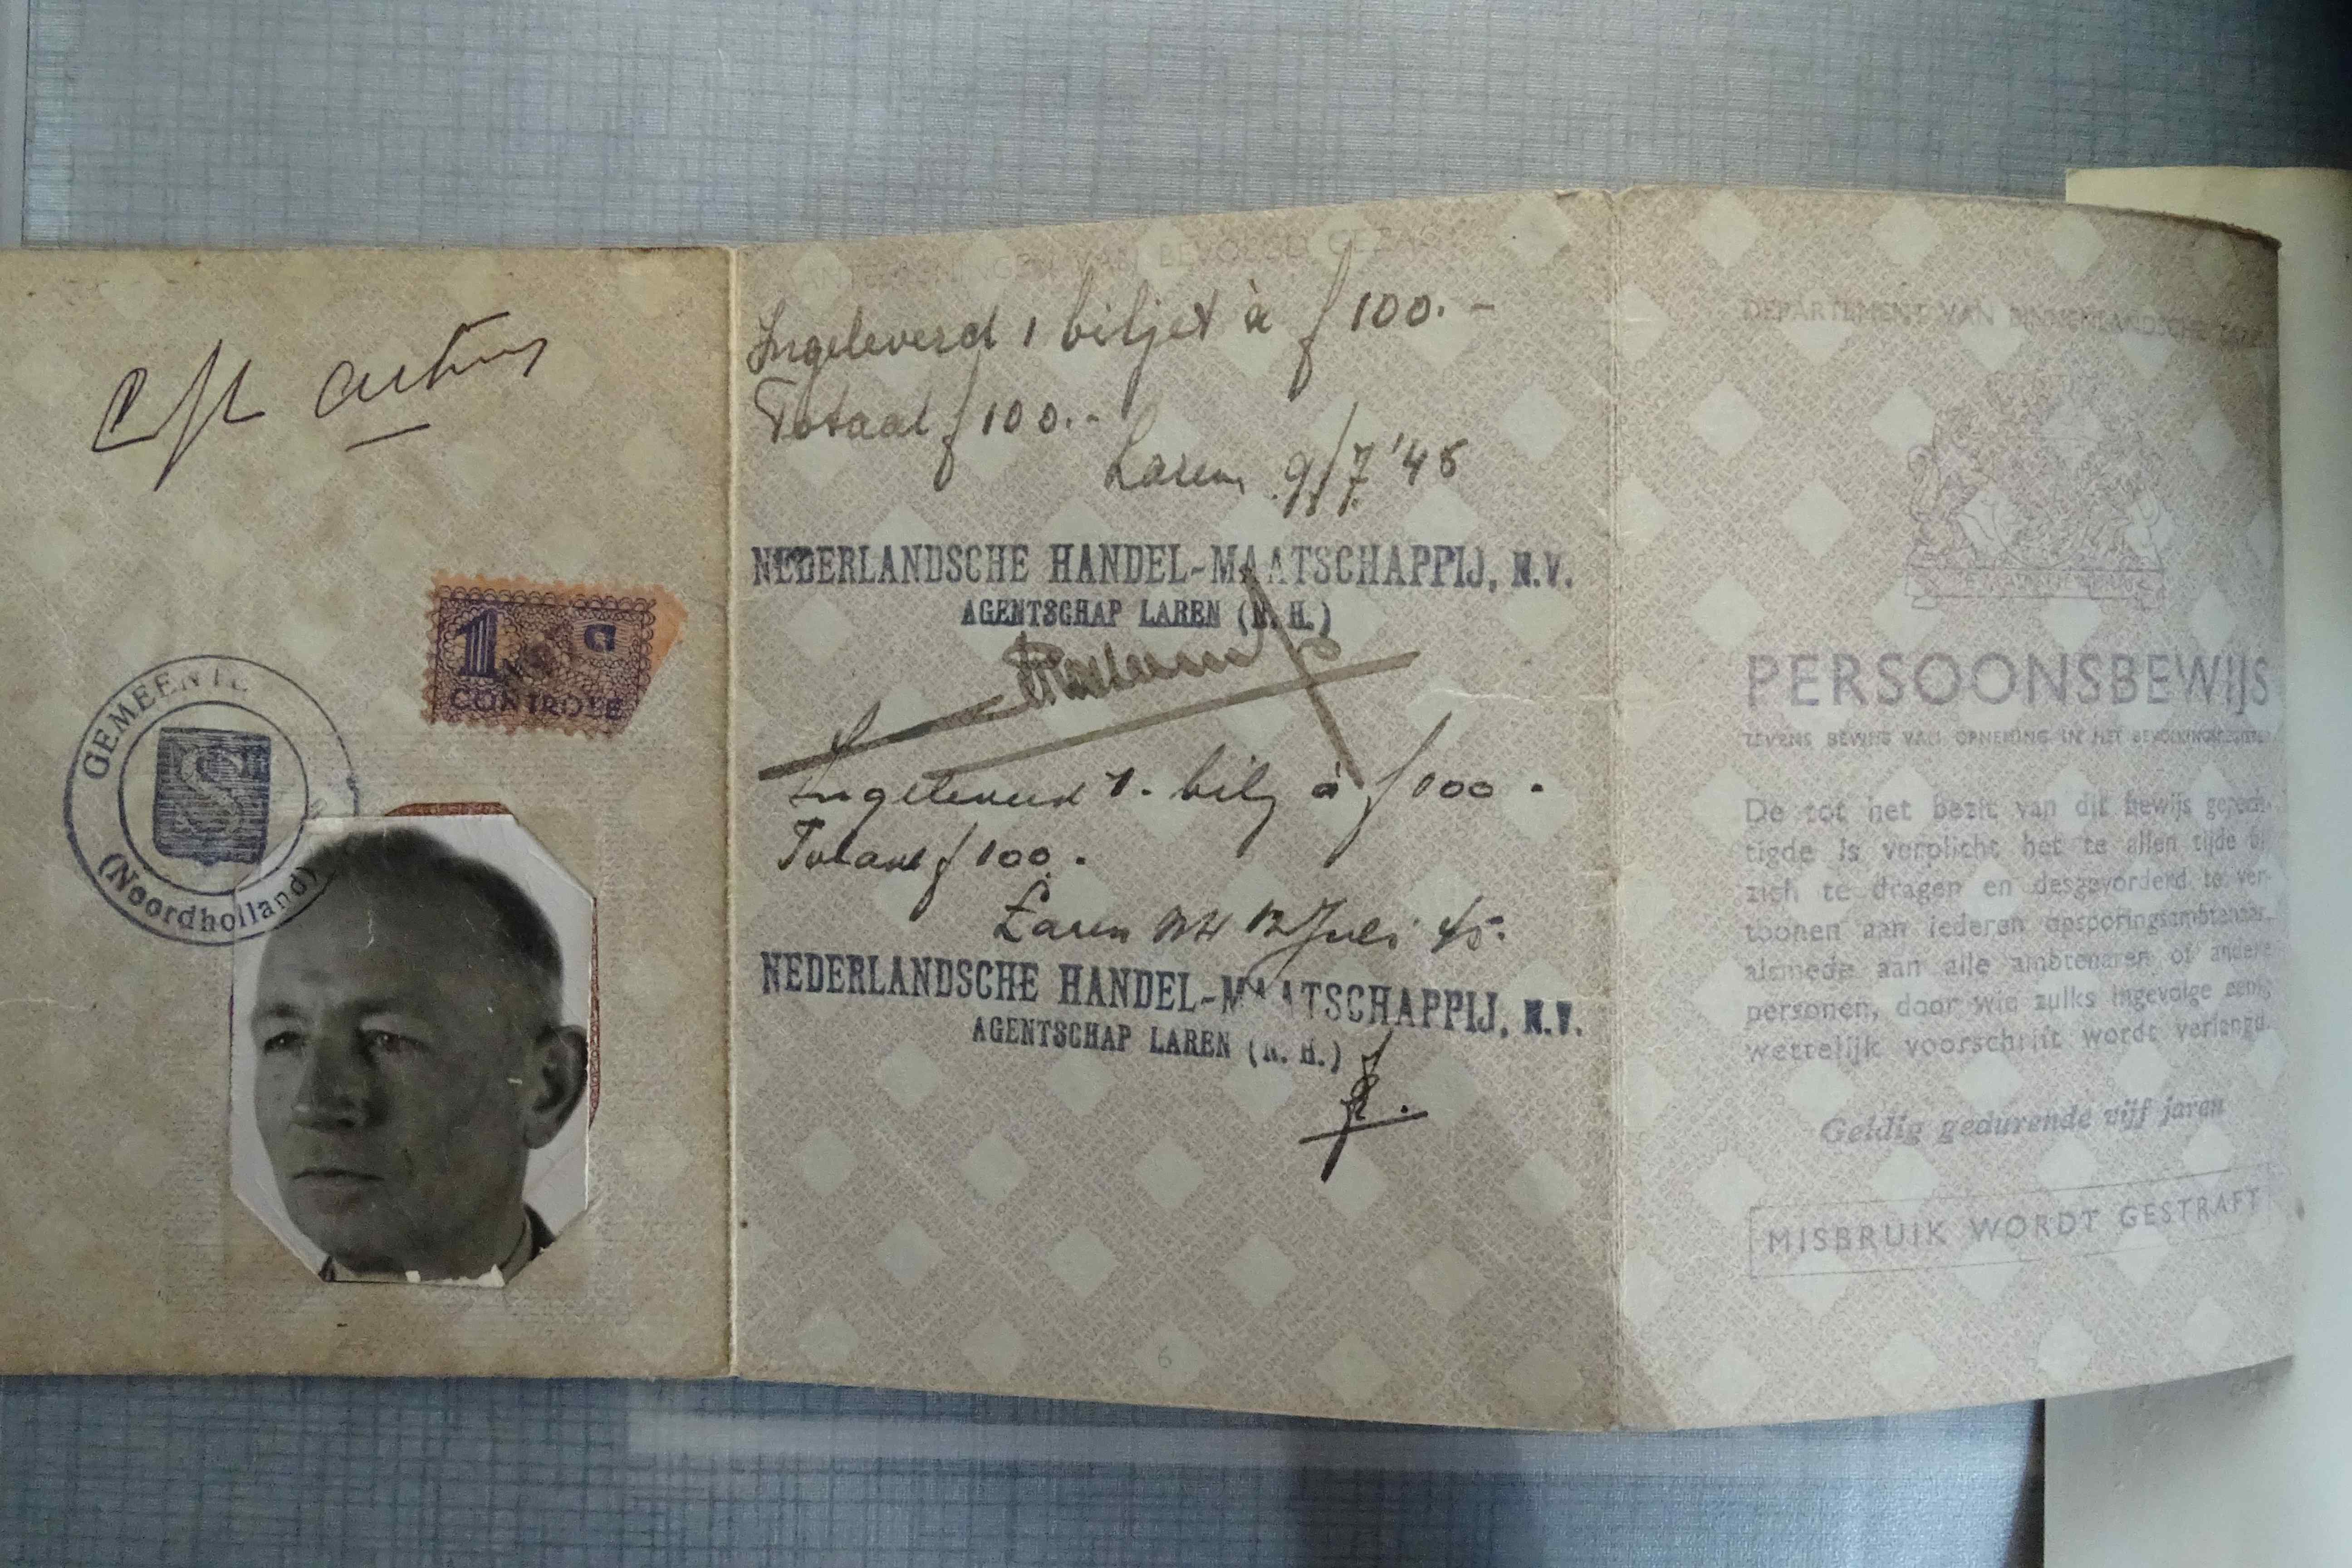 1 G
CONTROLE
GEMEENTE
(Noordholland)
AANTEEKENINGEN VAN BEVOEGD GEZAG
Ingeleverd 1 biljet à f 100.-
Totaal f 100.-
Laren 9/7 '45
NEDERLANDSCHE HANDEL-MAATSCHAPPIJ, N.V.
AGENTSCHAP LAREN (N.H.)
Ingeleverd 1. bilj à f 100.
Totaal f 100.
Laren NH 12 Juli 45.
NEDERLANDSCHE HANDEL-MAATSCHAPPIJ, N.V.
AGENTSCHAP LAREN (N.H.)
6
DEPARTEMENT VAN BINNENLANDSCHE
PERSOONSBEWIJS
TEVENS BEWIJS VAN OPNEMING IN HET BEVOLKINGSREGISTER
De tot het bezit van dit bewijs gerech-
tigde is verplicht het te allen tijde bij
zich te dragen en desgevorderd te ver-
toonen aan iederen opsporingsambtenaar,
alsmede aan alle ambtenaren of andere
personen, door wie zulks ingevolge eenig
wettelijk voorschrift wordt verlangd.
Geldig gedurende vijf jaren
MISBRUIK WORDT GESTRAFT